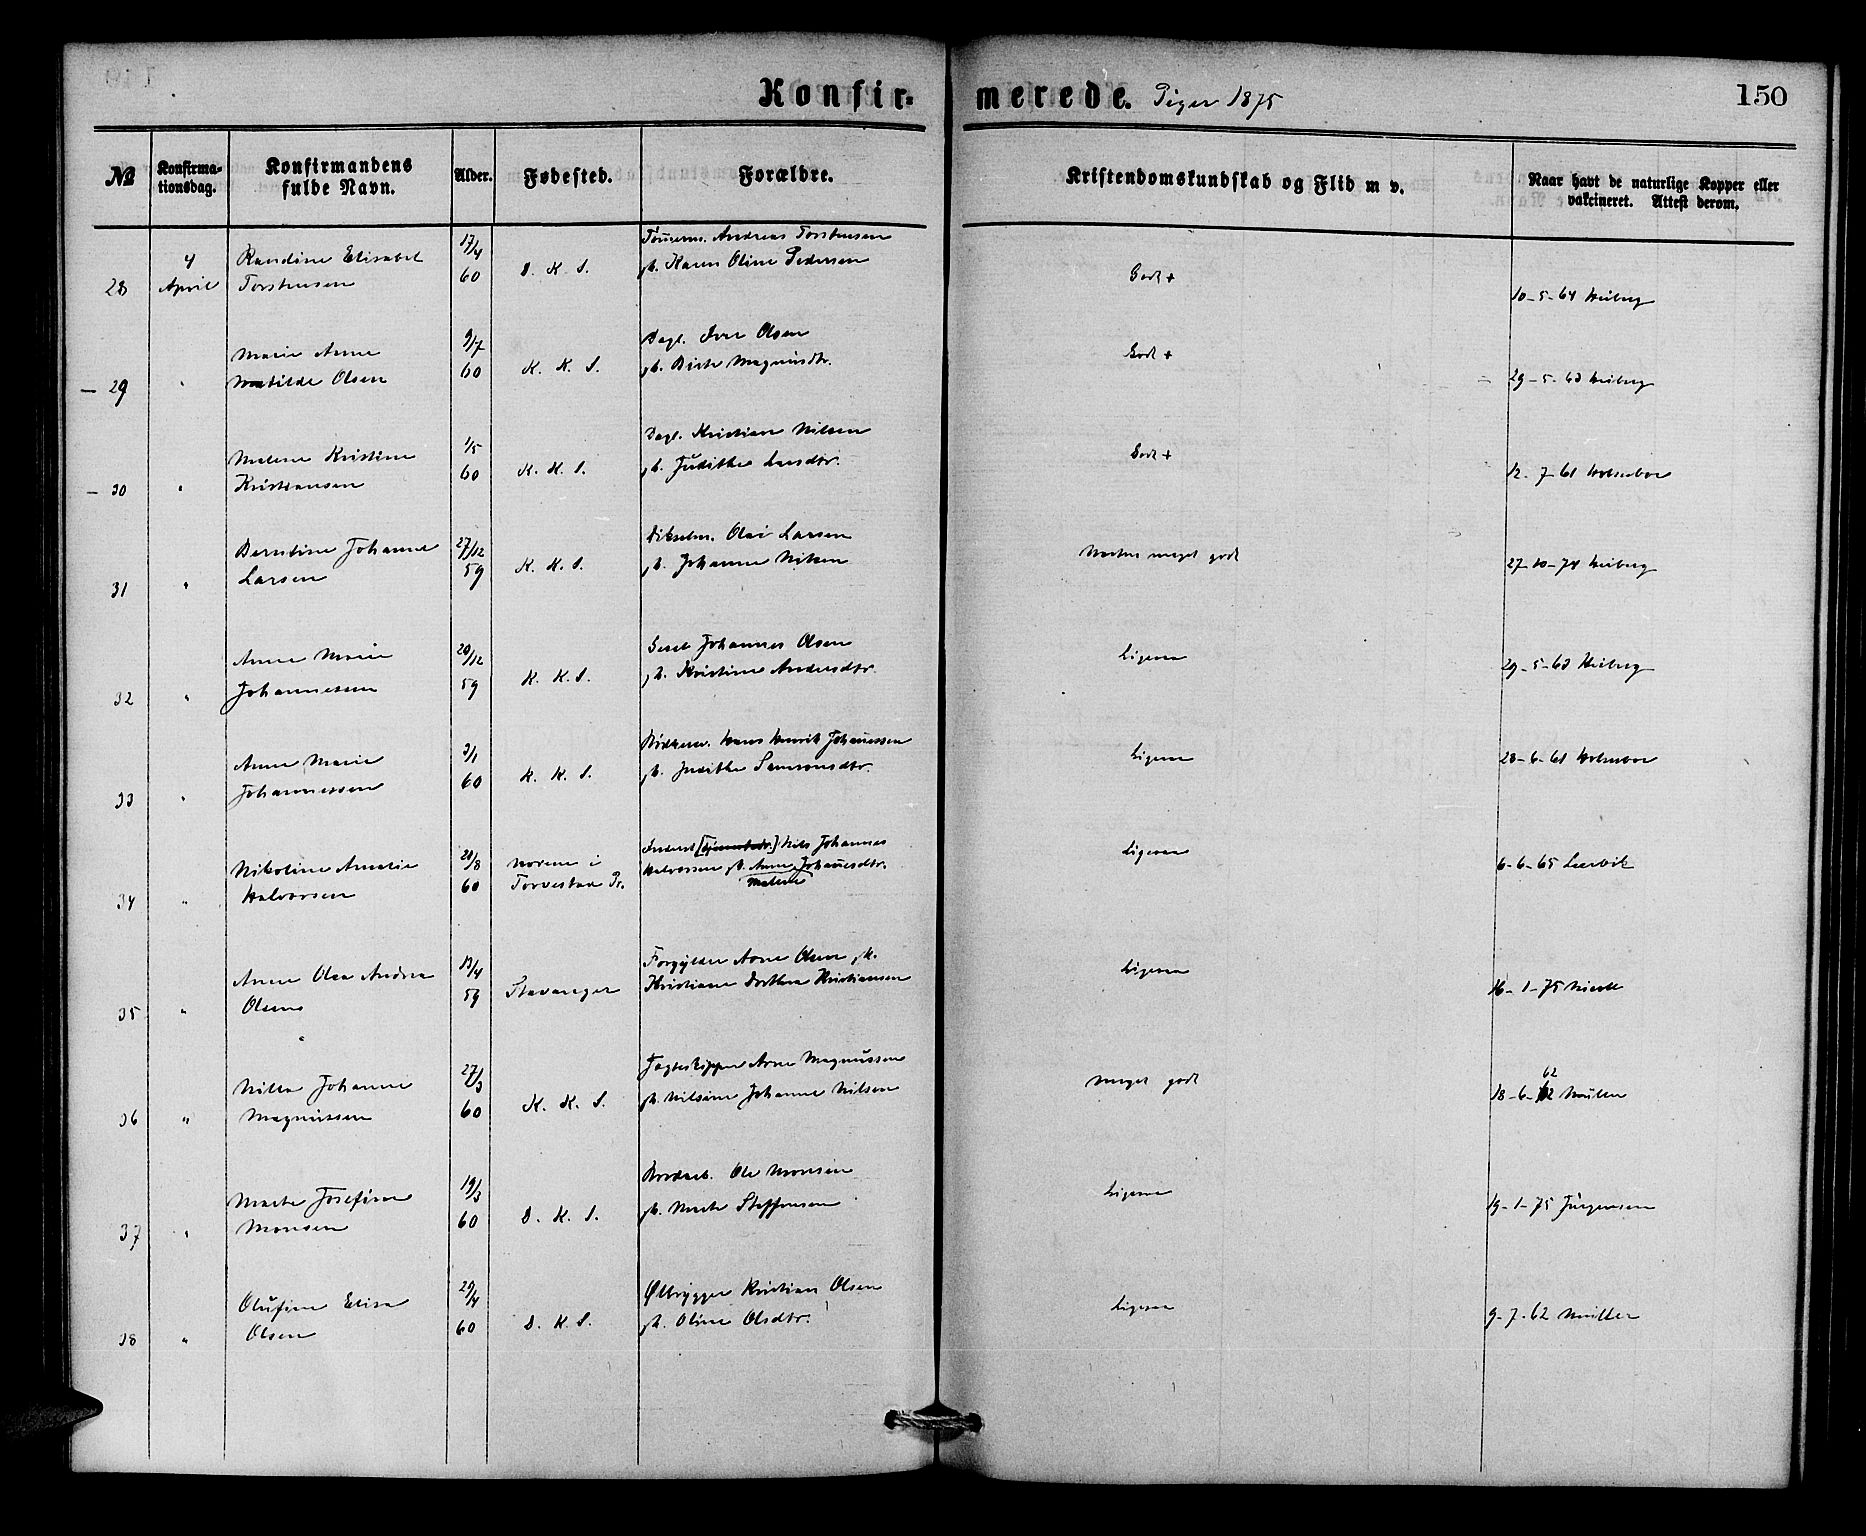 Konfirmerede. Piger 1875
150
№ Konfirmationsdag. Konfirmandens fulde Navn. Alder. Fødested. Forældre. Kristendomskundskab og Flid m v. Naar havt de naturlige Kopper eller vakcineret. Attest derom.
4 Randine Elisabet 17/4 Andreas Torstensen
28 April Torstensen 60 D. K. S. Karen Oline Pedersen Godt + 10-5-64 Heiberg
Marie Anne 9/7 Dagl. Iver Olsen
29 " Matilde Olsen 60 K. K. S. Birte Magnusdtr. Godt + 29-5-63 Heiberg
Malene Kristine 1/5 Dagl. Kristian Nilsen
30 " Kristiansen 60 K. K. S. Judithe Larsdtr. Godt + 12-7-61
Berntine Johanne 27/12 Olai Larsen
31 " Larsen 59 K. K. S. Johanne Nilsen Næsten meget godt 27-10-74 Heiberg
Anne Marie 20/12 Johannes Olsen
32 " Johannessen 59 K. K. S. Kristine Andersdtr. Ligesaa 29-5-63 Heiberg
Anne Marie 3/1 Hans Henrik Johanessen
33 " Johannessen 60 K. K. S. Judithe Samsonsdtr. Ligesaa 28-6-61
Nikoline Amalie 20/8 i Nils Johannes
34 " Halvorsen 60 Torvestad Pr. Halvorsen Anne Malene Johanesdtr. Ligesaa 6-6-65 Leervik
Anne Olea Andrea 13/4 Forgylder Arne Olsen
35 " Olsen 59 Stavanger Kristiane Dorthea Kristiansen Ligesaa 16-1-75
Nilla Johanne 27/3 Jagteskipper Arne Magnussen
36 " Magnussen 60 K. K. S. Nilsine Johanne Nilsen Meget godt 18-6-62 Müller
Marte Josefine 19/3 Ole Monsen
37 " Monsen 60 D. K. S. Marte Steffensen Ligesaa 19-1-75 Jürgensen
Olufine Elisa 29/4 Ølbrygger Kristian Olsen
38 " Olsen 60 D. K. S. Oline Olsdtr. Ligesaa 9-7-62 Müller